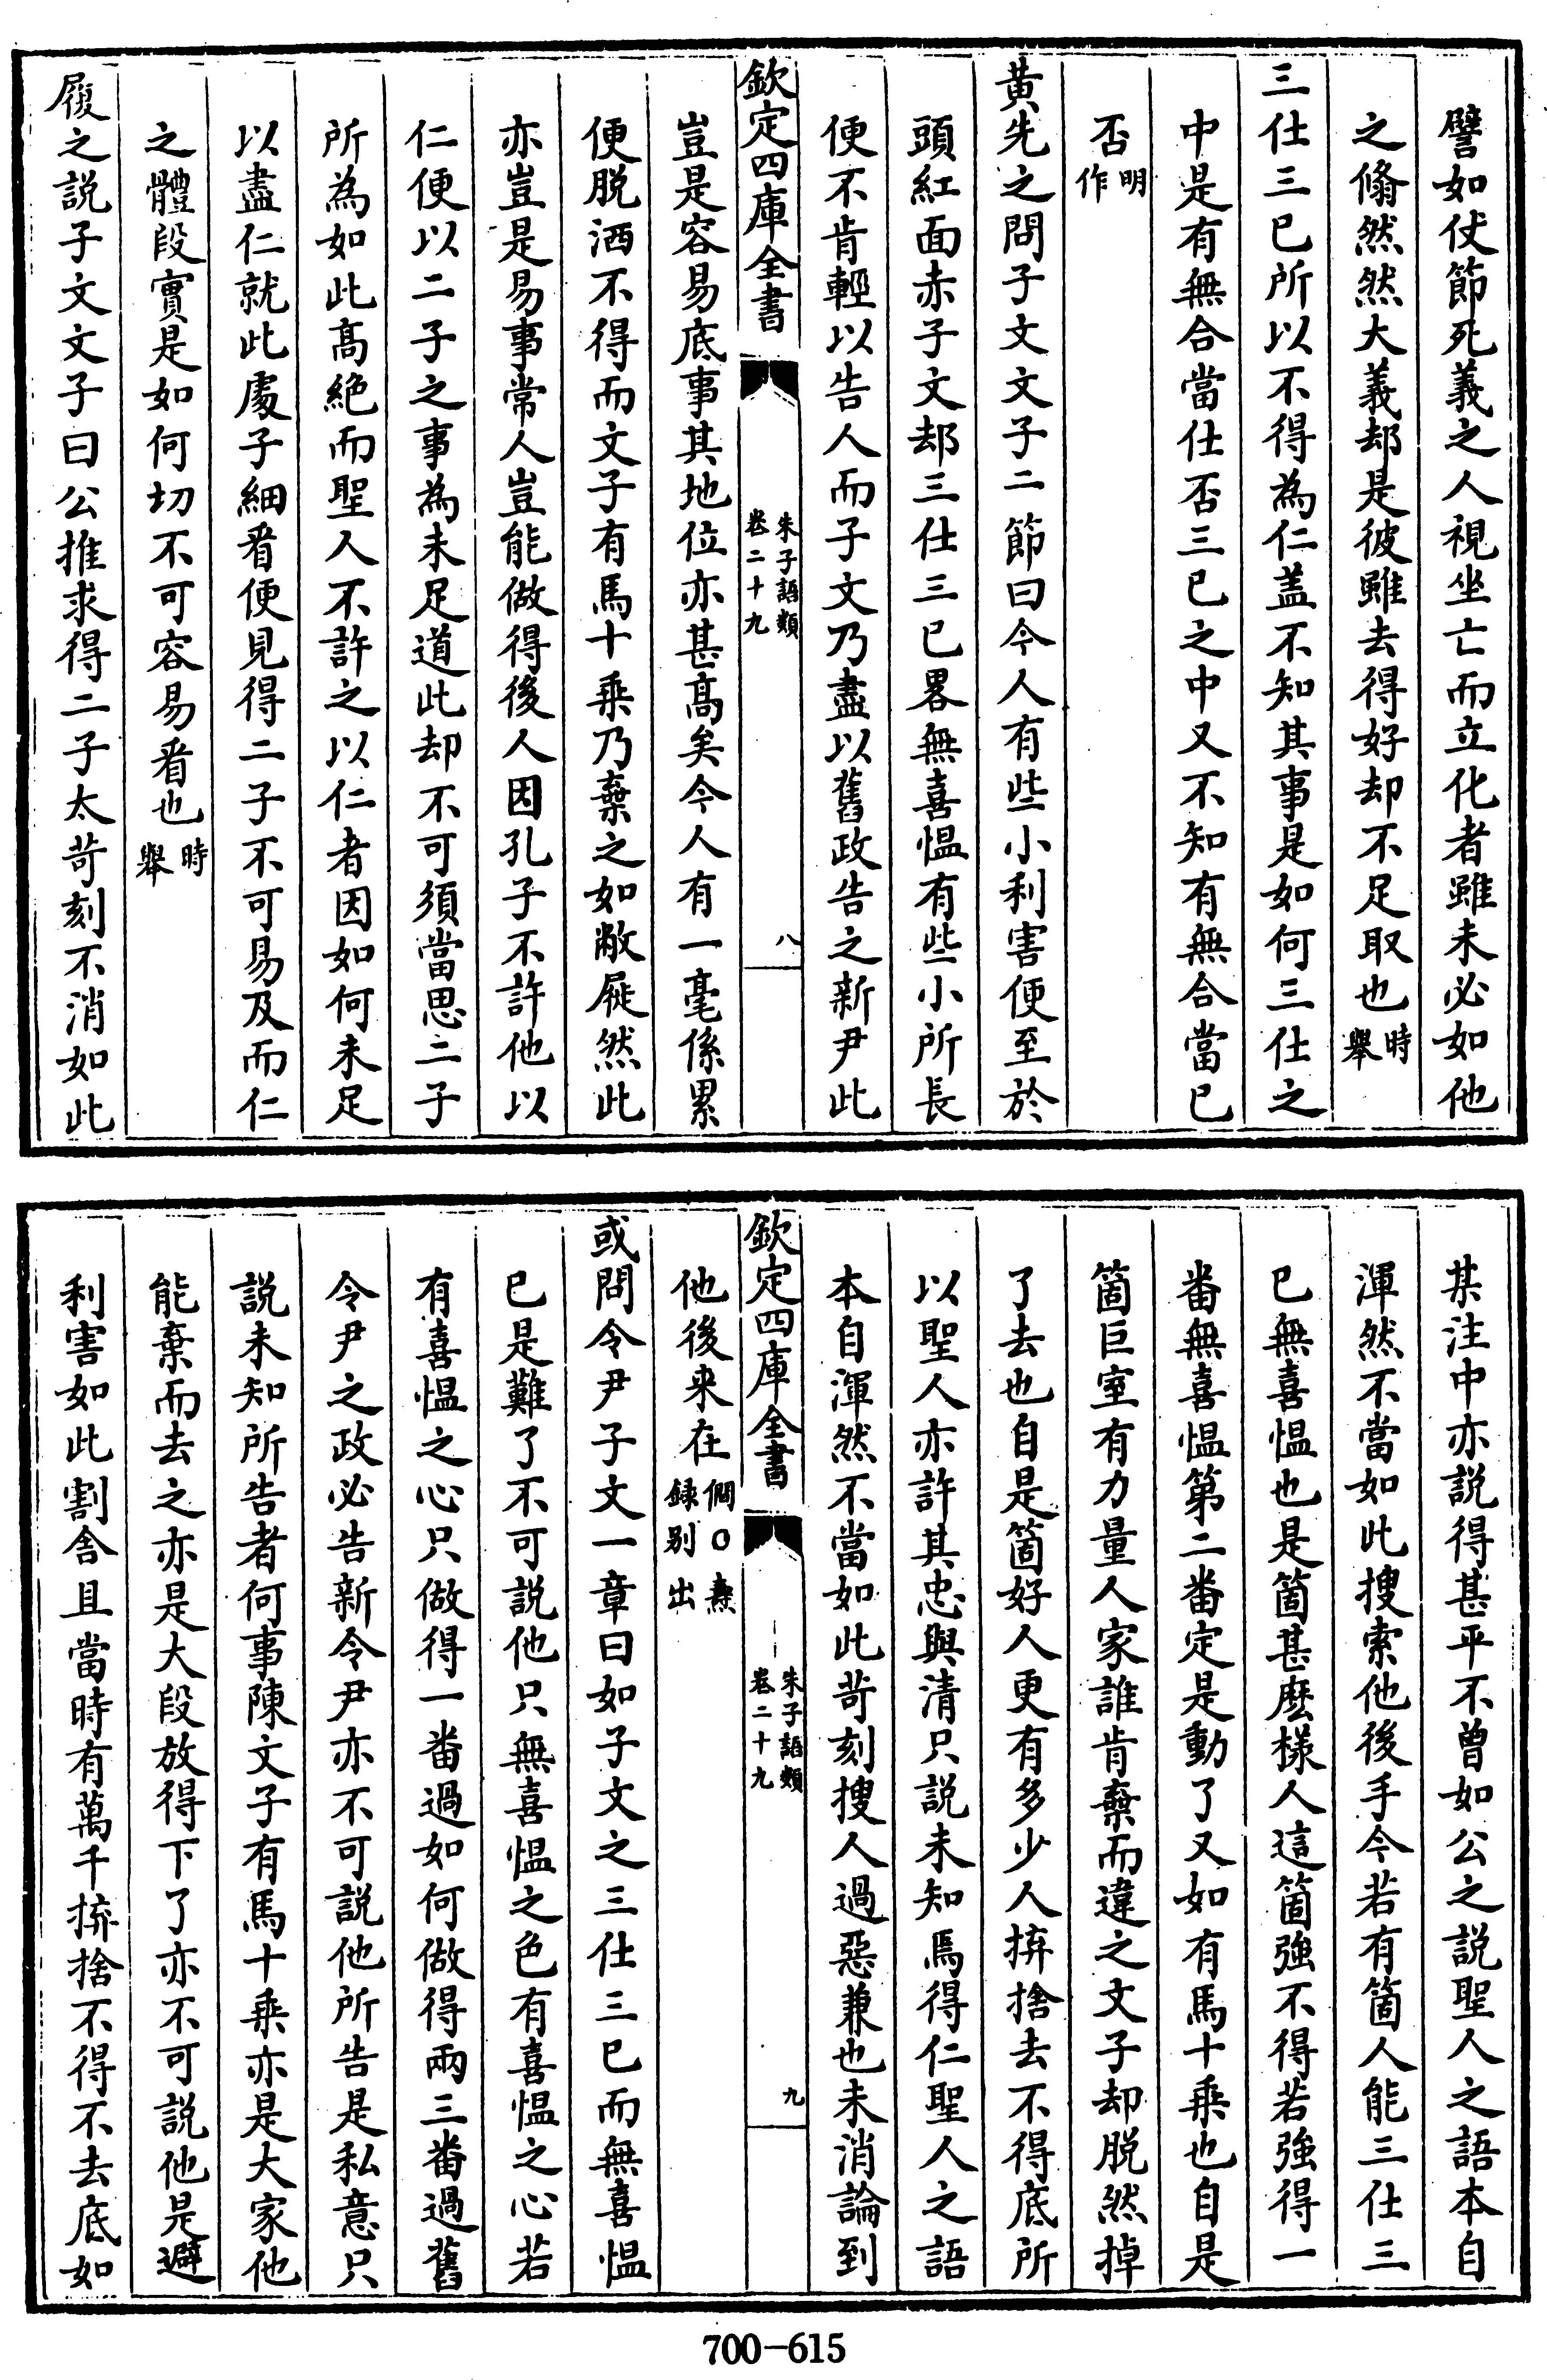 譬如仗節死義之人視坐亡而立化者雖未必如他
之翛然然大義却是彼雖去得好却不足取也時舉
三仕三已所以不得為仁盖不知其事是如何三仕之
中是有無合當仕否三已之中又不知有無合當已
否明作
黄先之問子文文子二節曰今人有些小利害便至於
頭紅面赤子文却三仕三已畧無喜愠有些小所長
便不肯輕以告人而子文乃盡以舊政告之新尹此
欽定四庫全書
朱子語類
卷二十九
八
豈是容易底事其地位亦甚髙矣今人有一毫係累
便脱洒不得而文子有馬十乘乃棄之如敝屣然此
亦豈是易事常人豈能做得後人因孔子不許他以
仁便以二子之事為未足道此却不可須當思二子
所為如此髙絶而聖人不許之以仁者因如何未足
以盡仁就此處子細看便見得二子不可易及而仁
之體段實是如何切不可容易看也時舉
履之説子文文子曰公推求得二子太苛刻不消如此
某注中亦説得甚平不曾如公之説聖人之語本自
渾然不當如此搜索他後手今若有箇人能三仕三
已無喜愠也是箇甚麽様人這箇強不得若強得一
番無喜愠第二番定是動了又如有馬十乘也自是
箇巨室有力量人家誰肯棄而違之文子却脱然掉
了去也自是箇好人更有多少人拚捨去不得底所
以聖人亦許其忠與清只説未知焉得仁聖人之語
本自渾然不當如此苛刻搜人過惡兼也未消論到
欽定四庫全書
朱子語類
卷二十九
九
他後来在僩○燾録别出
或問令尹子文一章曰如子文之三仕三已而無喜愠
已是難了不可説他只無喜愠之色有喜愠之心若
有喜愠之心只做得一番過如何做得兩三番過舊
令尹之政必告新令尹亦不可説他所告是私意只
説未知所告者何事陳文子有馬十乘亦是大家他
能棄而去之亦是大段放得下了亦不可説他是避
利害如此割舎且當時有萬千拚捨不得不去底如
700-615